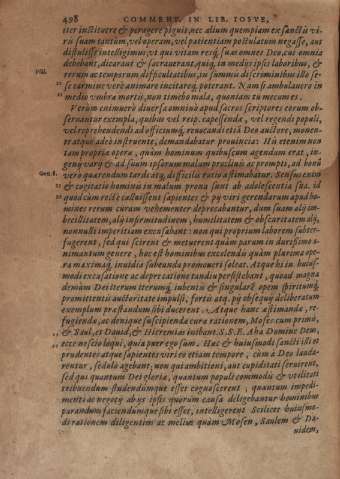 498 COMMENT. IN LIB. IOSVE,
iter instituere & peragere piguit, nec alium quempiam ex sanctis vi-
ris suam tantùm, vel operam, vel patientiam postulatum negasse, aut
distulisse intelligimus, vt qui vitam recip. suæ omnes Deo, cui omnia
debebant, dicarant & sacrauerant, quip. in medijs ipsis laboribus, &
rerum ac temporum difficultatibus, in summis discriminibus ille se-
VIII.
se carmine verè animare incitareq. poterant. Nam si ambulauero in
medio vmbra mortis, non timebo mala, quoniam tu mecum es.
Verùm enimuero diuersa omnino apud sacros scriptores eorum ob-
seruantur exempla, quibus vel reip. capessenda, vel regendi populi,
vel reprehendendi ad officiumq. reuocandi etiã Deo auctore, monen-
te atque adeò instruente, demandabatur prouincia: Hi etenim non
tam propria opera, quàm hominum quibuscum agendum erat, in-
geny varij & ad suum ipsorum malum procliuis ac prompti, ad bonũ
Gen. 8.
verò quarendum tardi atq. difficilis ratio æstimabatur. Sensus enim
& cogitatio hominis in malum prona sunt ab adolescentia sua. id
quod cum rectè callentes sapientes & pij viri gerendarum apud ho-
mines rerum curam vehementer deprecabantur, dum suam alij im-
becillitatem, alij inferioritatem, humilitatem & obscuritatem alij,
nonnulli imperitiam excusabant: non qui proprium laborem subter-
fugerent, sed qui scirent & metuerent quàm parum in durissimo a-
nimantum genere, hoc est hominibus excolendis quàm plurima ope-
ra maximaq. inuidia subeunda promoueri soleat. Atque his in huius-
modi excusatione ac deprecatione tandiu persistebant, quoad magna
demum Dei iterum iterumq. iubentis & singularẽ opem spiritumq.
promittentis auctoritate impulsi, fortis atq. pij obsequij deliberatum
exemplum præstandum sibi ducerent. Atque hanc æstimanda, re-
fugienda, ac denique suscipienda cura rationem, Moses cum primis,
& Saul, et Dauid, & Hieremias inibant. S.S.E. Aha Domine Deus,
ecce nescio loqui, quia puer ego sum. Hac & huiusmodi sancti isti et
prudentes atque sapientes viri eo etiam tempore, cùm à Deo lauda-
rentur, sedulo agebant; non qui ambitioni, aut cupiditati seruirent,
sed qui quantum Dei gloria, quantum populi commodis & vtilitati
tribuendum studendumque esset cognoscerent, quantum impedi-
menti ac negotij abijs ipsis quorum causa deligebantur hominibus
parandum faciendumque sibi esset, intelligerent Scilicet huiusmo-
di rationem diligentius ac melius quàm Mosen, Saulem & Da-
uidem,